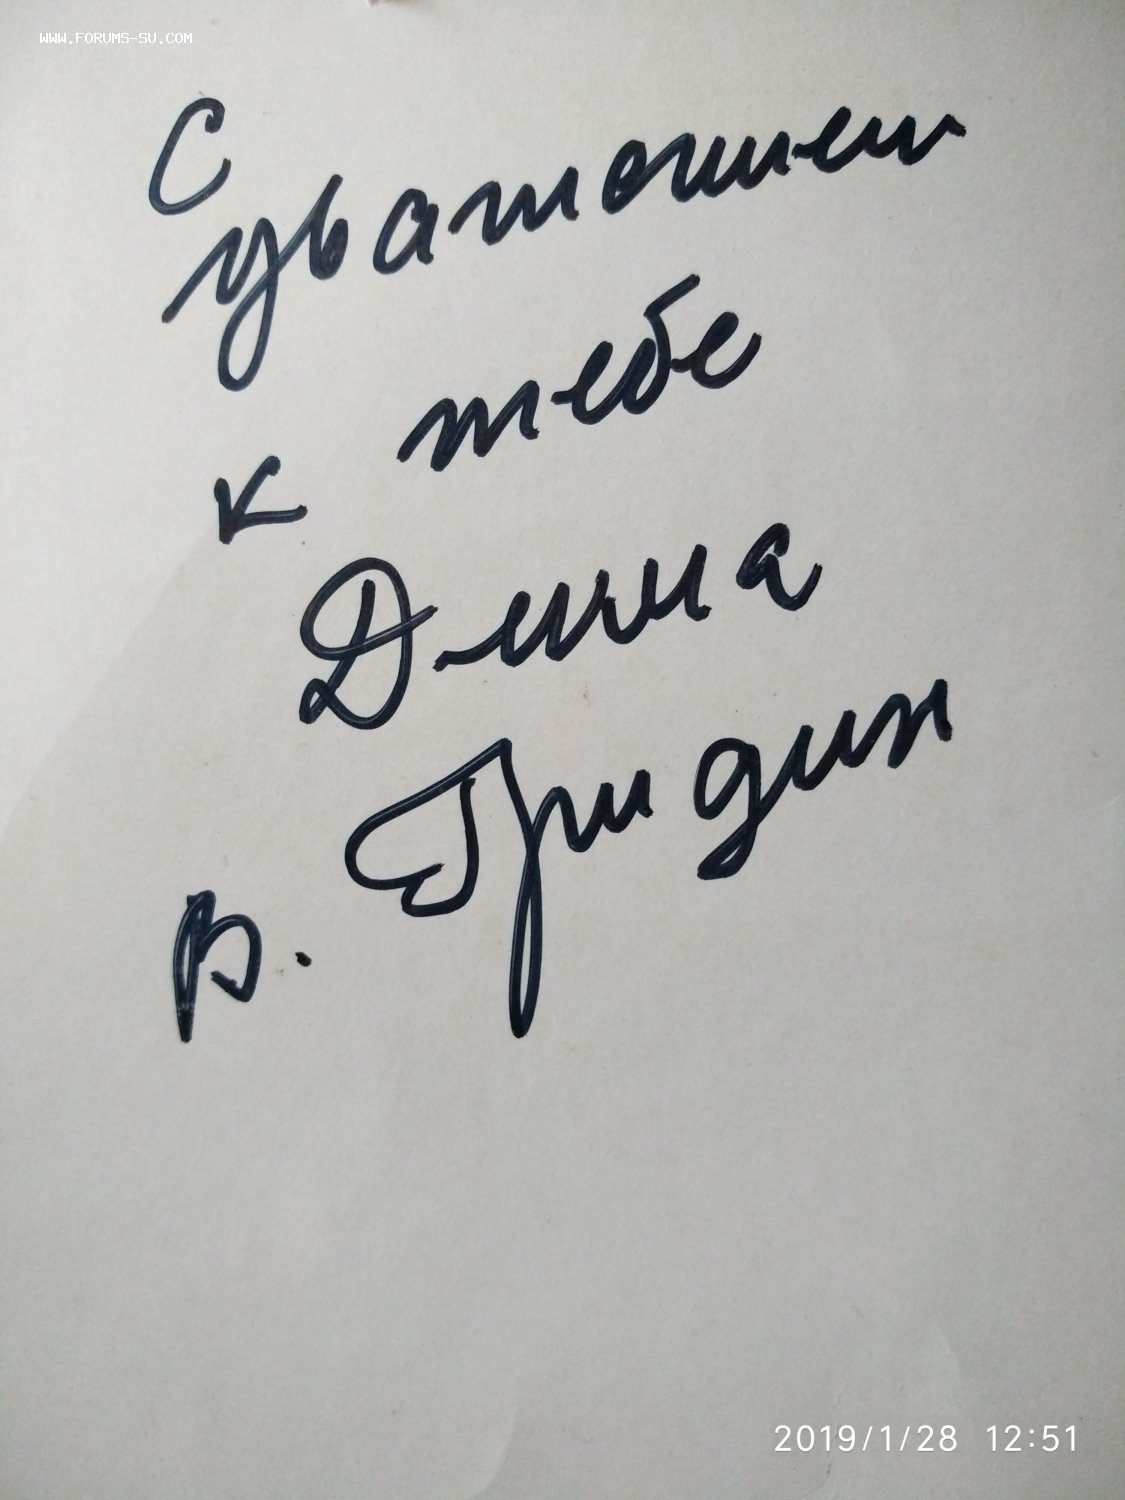 WWW.FORUMS-SU.COM
С
уважением
к тебе
Дима
В. Гридин
2019/1/28 12:51